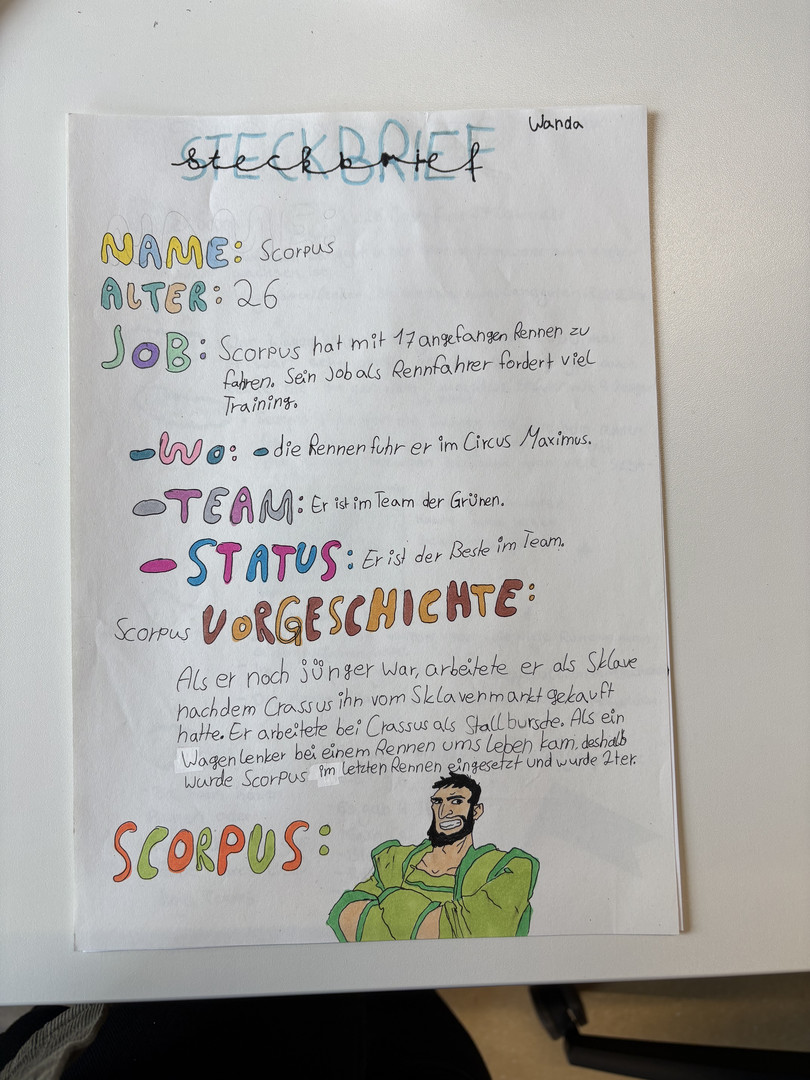 Wanda
STECKBRIEF
steckbrief
NAME: Scorpus
ALTER: 26
JOB: Scorpus hat mit 17 angefangen Rennen zu
fahren. Sein Job als Rennfahrer fordert viel
Training.
-Wo: - die Rennen fuhr er im Circus Maximus.
-TEAM: Er ist im Team der Grünen.
- STATUS: Er ist der Beste im Team.
Scorpus VORGESCHICHTE:
Als er noch jünger war, arbeitete er als Sklave
nachdem Crassus ihn vom Sklavenmarkt gekauft
hatte. Er arbeitete bei Crassus als Stallbursche. Als ein
Wagenlenker bei einem Rennen ums leben kam, deshalb
wurde Scorpus im letzten Rennen eingesetzt und wurde 2ter.
SCORPUS: